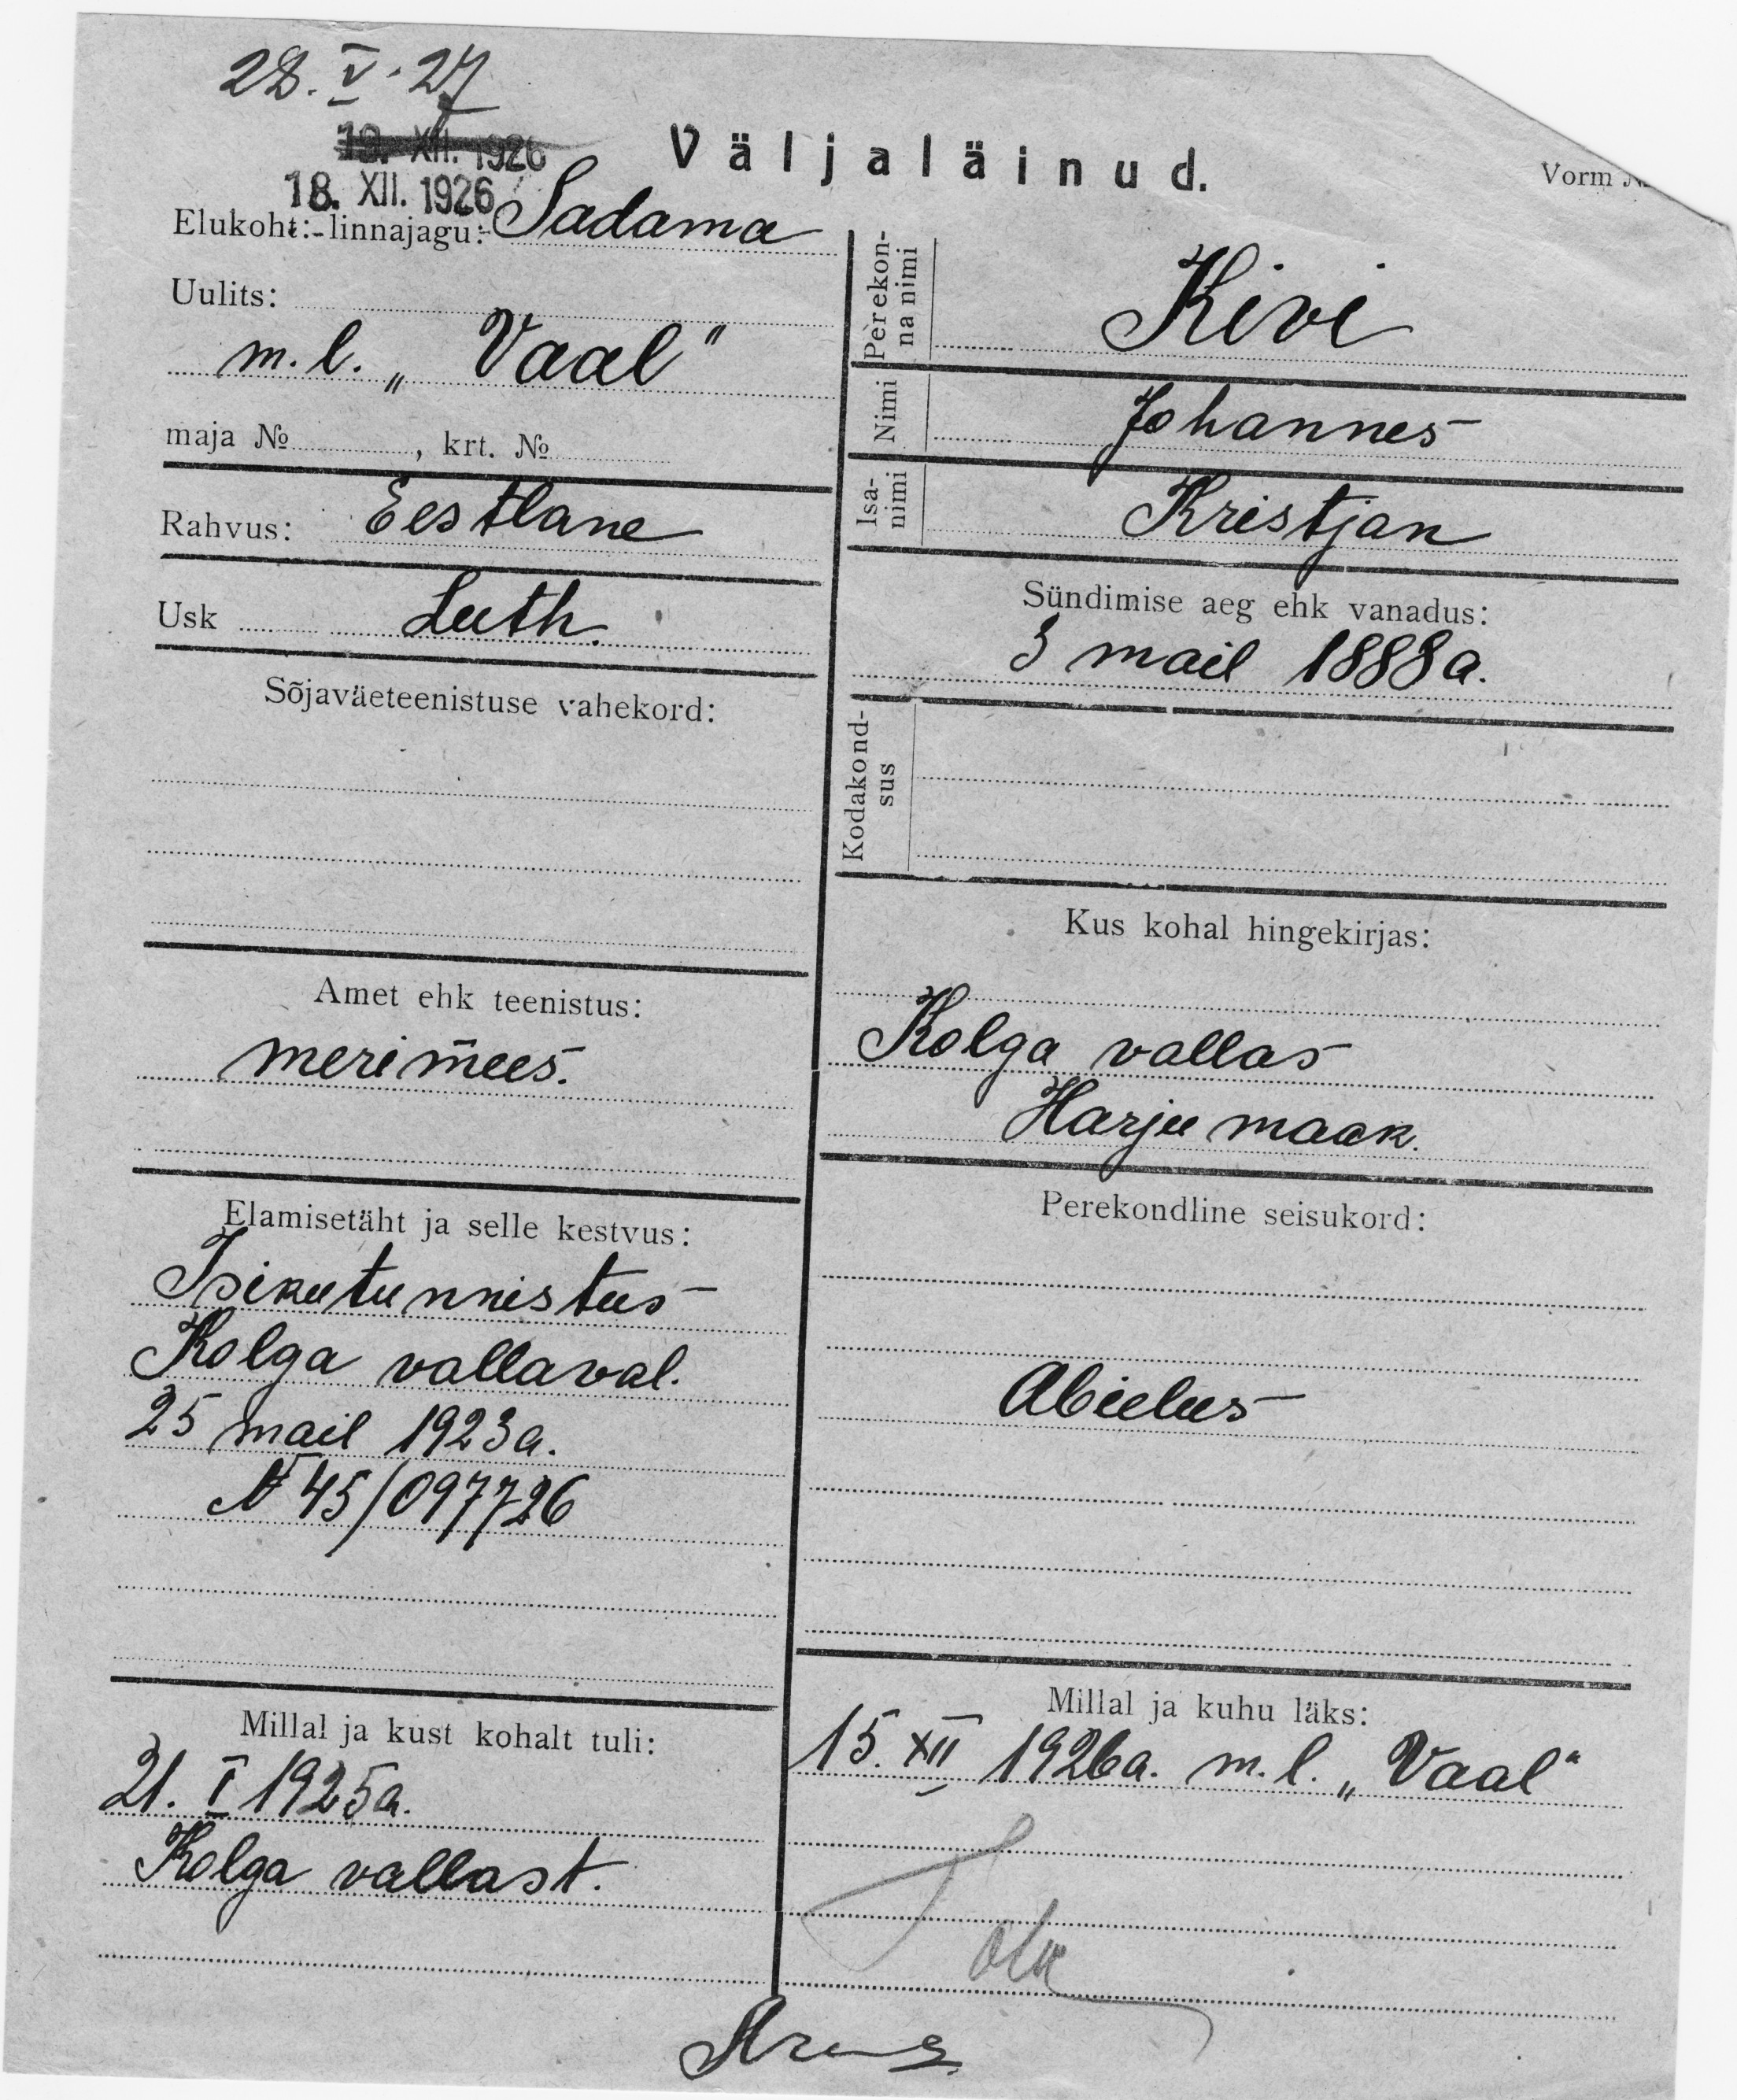 28. V. 27
19. XII. 1926
18. XII. 1926
Väljaläinud.
Vorm №
Elukoht:-linnajagu:- Sadama
Uulits:
m. l. „Vaal"
maja № , krt. №
Rahvus: Eestlane
Usk Luth.
Sõjaväeteenistuse vahekord:
Amet ehk teenistus:
merimees.
Elamisetäht ja selle kestvus:
Isikutunnistus
Kolga vallaval.
25 mail 1923 a.
№ 45/097726
Millal ja kust kohalt tuli:
21. I 1925 a.
Kolga vallast.
Perekon-
na nimi
Kivi
Nimi
Johannes
Isa-
nimi
Kristjan
Sündimise aeg ehk vanadus:
3 mail 1888 a.
Kodakond-
sus
Kus kohal hingekirjas:
Kolga vallas
Harju maak.
Perekondline seisukord:
Abielus
Millal ja kuhu läks:
15. XII 1926 a. m. l. „Vaal"